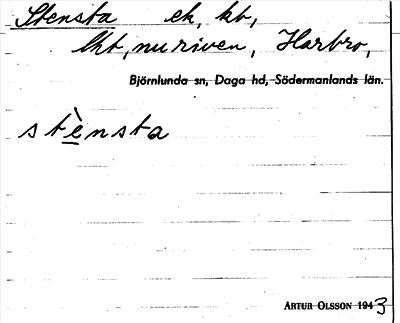 Stensta ek, kt,
lkt, nu riven, Harbro,
Björnlunda sn, Daga hd, Södermanlands län.
stènsta
ARTUR OLSSON 1943